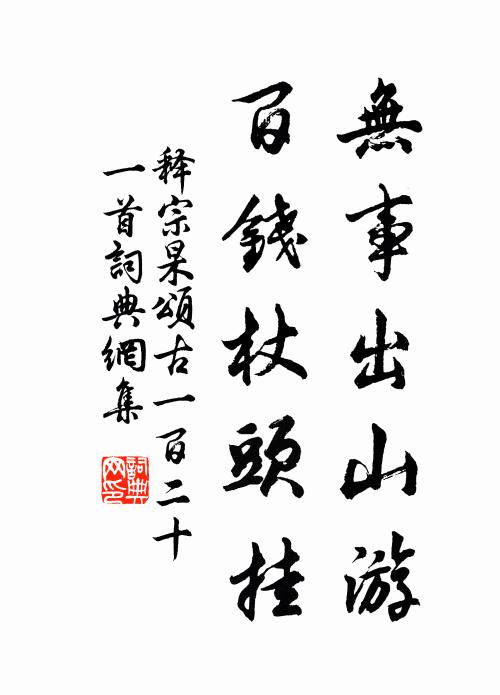 無事出山游
百錢杖頭挂
释宗杲頌古一百二十
一首詞典網集
詞典
网印